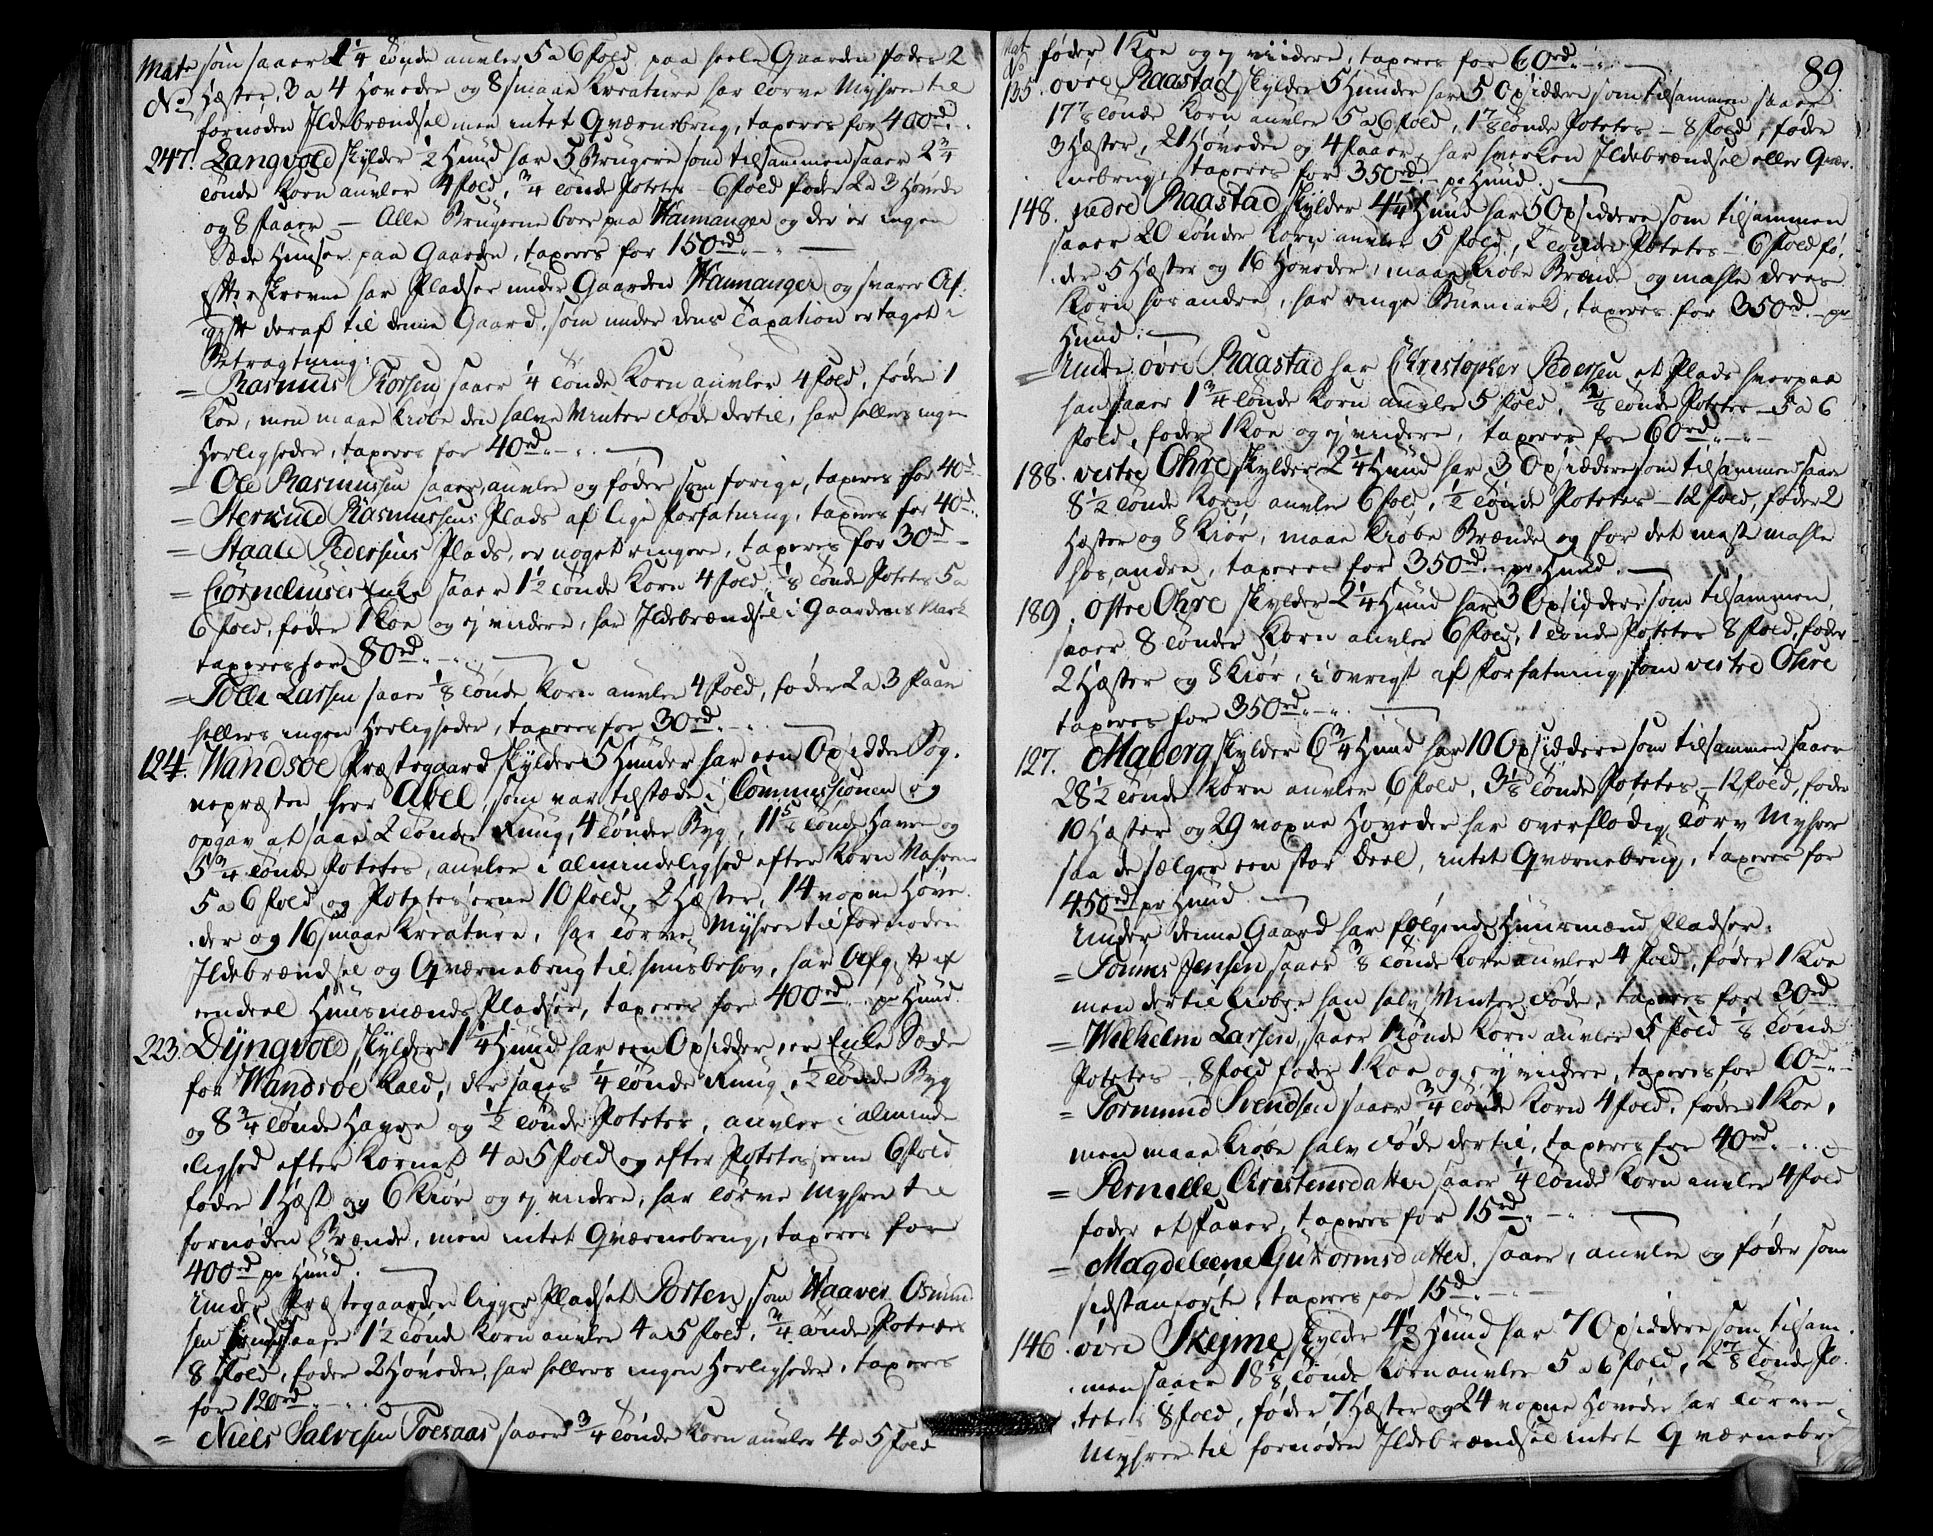 Mat.
No
som saaer 1 1/4 Tønde auvler 5 a 6 fold paa heele Gaarden føder 2
Hæster, 3 a 4 Høveder og 8 smaae Kreature har Torve Myhren til
fornøden Ildebrændsel men intet Qværnebrug, taxeres for 400rd.
247. Langvold skylder 1/2 Hund har 5 Brugere som tilsammen saaer 2 3/4
Tønde Korn auvler 4 fold, 3/4 Tønde Potetes – 6 fold føder 2 a 3 Høvede
og 8 Faaer – Alle Brugerne boer paa Hannanger og der er ingen
Sæde Huuser paa Gaarden, taxeres for 150rd.
Efterskrevne har Pladser under Gaarden Hannanger og svarer Af-
gift deraf til denne Gaard, som under dens Taxation er taget i
Betragtning:
= Rasmus Thorsen saaer 1/4 Tønde Korn auvler 4 fold, føder 1
Koe, men maae kiøbe den halve Winter Føde dertil, har hellers ingen
Herligheder, taxeres for 40rd.
= Ole Rasmussen saaer, auvler og føder som forige, taxeres for 40rd.
= Sterkuld Rasmussens Plads af lige Forfatning, taxeres for 40rd.
= Staale Pedersens Plads, er noget ringere, taxeres for 30rd –
= Corneliuses Enke saaer 1 1/2 Tønde Korn 4 fold, 1/8 Tønde Potetes 5 a
6 fold, føder 1 Koe og ej videre, har Ildebrændsel i Gaardens Mark
taxeres for 80rd.
= Tolle Larsen saaer 1/8 Tønde Korn auvler 4 fold, føder 2 a 3 Faaer
hellers ingen Herligheder, taxeres for 30rd.
124. Wandsøe Præstegaard skylder 5 Hunder har een Opsidder Sog-
nepræsten Herr Abel, som var tilstæde i Commissionen og
opgav at saae 2 Tønder Ruug, 4 Tønder Byg, 11 5/8 Tønde Havre og
5 3/4 Tønde Potetes, auvler i almindelighed efter Korn Wahrene
5 a 6 fold og Poteteserne 10 fold, 2 Hæster, 14 voxne Høve-
der og 16 smaae Kreature, har Torve Myhren til fornøden
Ildebrændsel og Qværnebrug til huusbehov, har Afgift af
eendeel Huusmænds Pladser, taxeres for 400rd. pr Hund.
223. Dyngvold skylder 1 1/4 Hund har een Opsidder, er Enke Sæde
for Wandsøe Kald, der saaes 1/4 Tønde Ruug, 1/2 Tønde Byg
og 8 3/4 Tønde Havre og 1/2 Tønde Potetes, auvler i alminde-
lighed efter Kornet 4 a 5 fold og efter Poteteserne 6 fold
føder 1 Hæst og 6 Kiør og ej videre, har Torve Myhren til
fornøden Brænde, men intet Qværnebrug, taxeres for
400rd pr Hund.
Under Præstegaarden ligger Pladset Porten, som Haaver Osmund
sen saaer 1 1/2 Tønde Korn auvler 4 a 5 fold, 3/4 Tønde Potetes
8 fold, føder 2 Høveder, har hellers ingen Herligheder, taxeres
for 120rd.
= Niels Salvesen Toesaas saaer 3/4 Tønde Korn auvler 4 a 5 fold
89.
Mat
No
føder 1 Koe og ej viidere, taxeres for 60rd.
135. øvre Raastad skylder 5 Hunder har 5 Opsiddere som tilsammen saaer
17 7/8 Tønde Korn auvler 5 a 6 fold, 1 7/8 Tønde Potetes – 8 fold, føder
3 Hæster, 21 Høveder og 4 Faaer, har hverken Ildebrændsel eller Qvær-
nebrug, taxeres for 350rd. – pr Hund.
148. nedre Raastad skylder 4 1/4 Hund har 5 Opsiddere som tilsammen
saaer 20 Tønder Korn auvler 5 fold, 2 Tønder Potetes – 6 fold fø-
der 5 Hæster og 16 Høveder, maae kiøbe Brænde og mahle deres
Korn hos andre, har ringe Buemark, taxeres for 350rd. – pr
Hund.
= Under øvre Raastad har Christopher Pedersen et Plads hvorpaa
han saaer 1 3/4 Tønde Korn auvler 5 fold, 2/8 Tønde Potetes – 5 a 6
fold, føder 1 Koe og ej videre, taxeres for 60rd.
188. vestre Ohre skylder 2 1/4 Hund har 3 Opsiddere som tilsammen saaer
8 1/2 Tønde Korn auvler 6 fold, 1/2 Tønde Potetes – 12 fold, føder 2
Hæster og 8 Kiør, maae kiøbe Brænde og for det mæste mahle
hos andre, taxeres for 350rd. pr Hund.
189. østre Ohre skylder 2 1/4 Hund har 3 Opsiddere som tilsammen
saaer 8 Tønder Korn auvler 6 fold, 1 Tønde Potetes 8 fold, føder
2 Hæster og 8 Kiør, i øvrigt af Forfatning som vestre Ohre
taxeres for 350rd.
127. Maberg skylder 6 3/4 Hund har 10 Opsiddere som tilsammen saaer
28 1/2 Tønde Korn auvler 6 fold, 3 1/8 Tønde Potetes – 12 fold, føder
10 Hæster og 29 voxne Høveder har overflødig Torv Myhrer
saa de sælger een stor Deel, intet Qværnebrug, taxeres for
450rd pr Hund.
Under denne Gaard har følgende Huusmænd Pladser:
= Tønnes Jensen saaer 3/8 Tønde Korn auvler 4 fold, føder 1 Koe
men dertil kiøber han halv Winter Føde, taxeres for 30rd
= Wilhelm Larsen, saaer 1 Tønde Korn auvler 5 fold 1/8 Tønde
Potetes – 8 fold føder 1 Koe og ej videre, taxeres for 60rd.
= Tormund Svendsen saaer 3/4 Tønde Korn 4 fold, føder 1 Koe,
men maae kiøbe halv Føde dertil, taxeres for 40rd.
= Pernille Christensdatter saaer 1/4 Tønde Korn auvler 4 fold
føder et Faaer, taxeres for 15rd.
= Magdeleene Guttormsdatter, saaer, auvler og føder som
sidstanførte, taxeres for 15d.
146. øvre Skejme skylder 4 1/8 Hund har 7 Opsiddere som tilsam-
men saaer 18 5/8 Tønde Korn auvler 5 a 6 fold, 2 7/8 Tønde Po-
tetes 8 fold, føder 7 Hæster og 24 voxne Høveder har Torve
Myhrer til fornøden Ildebrændsel intet Qværnebr